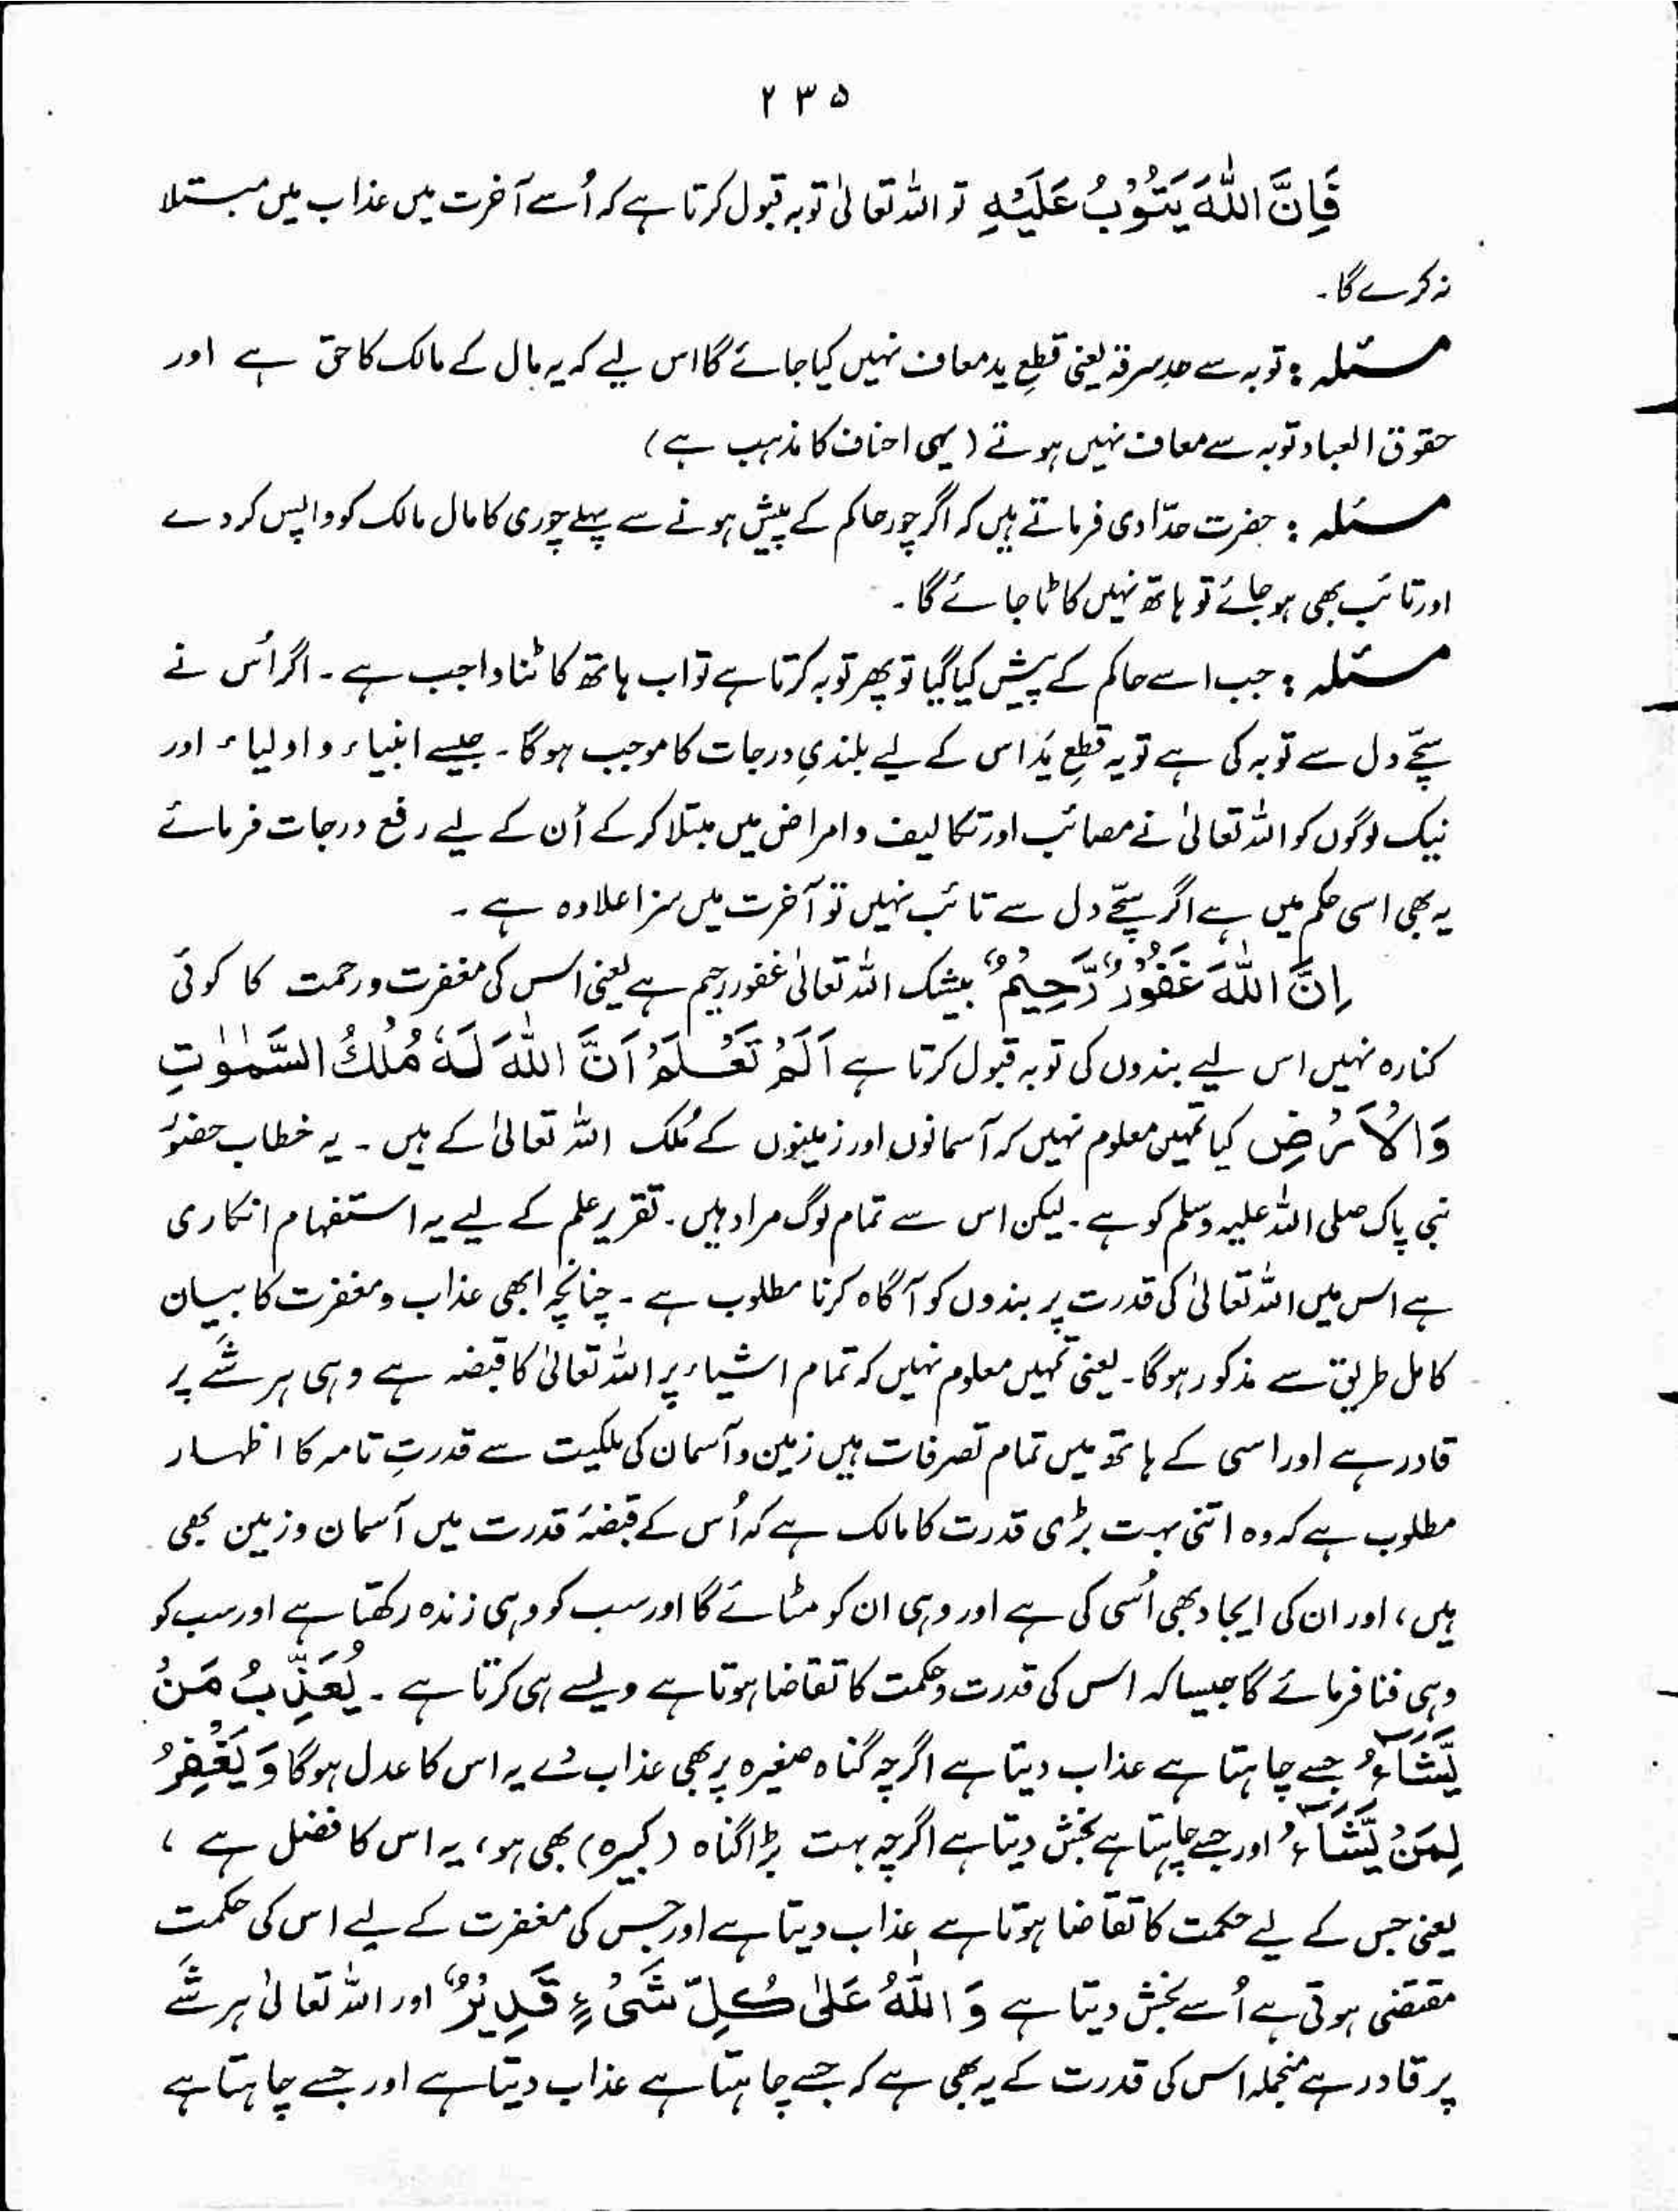 ۲۳۵
فَاِنَّ اللّٰهَ يَتُوْبُ عَلَيْهِ تو اللہ تعالیٰ توبہ قبول کرتا ہے کہ اُسے آخرت میں عذاب میں مبتلا
نہ کرے گا۔
مسئلہ : توبہ سے حدِ سرقہ یعنی قطعِ ید معاف نہیں کیا جائے گا اس لیے کہ یہ مال کے مالک کا حق ہے اور
حقوق العباد توبہ سے معاف نہیں ہوتے (یہی احناف کا مذہب ہے)
مسئلہ : حضرت حدّادی فرماتے ہیں کہ اگر چور حاکم کے پیش ہونے سے پہلے چوری کا مال مالک کو واپس کر دے
اور تائب بھی ہو جائے تو ہاتھ نہیں کاٹا جائے گا۔
مسئلہ : جب اسے حاکم کے پیش کیا گیا تو پھر توبہ کرتا ہے تو اب ہاتھ کاٹنا واجب ہے۔ اگر اُس نے
سچّے دل سے توبہ کی ہے تو یہ قطعِ یَد اس کے لیے بلندیِ درجات کا موجب ہوگا۔ جیسے انبیاء و اولیاء اور
نیک لوگوں کو اللہ تعالیٰ نے مصائب اور تکالیف و امراض میں مبتلا کر کے اُن کے لیے رفع درجات فرمائے
یہ بھی اسی حکم میں ہے اگر سچّے دل سے تائب نہیں تو آخرت میں سزا علاوہ ہے۔
اِنَّ اللّٰهَ غَفُوْرٌ رَّحِيْمٌ بیشک اللہ تعالیٰ غفور رحیم ہے یعنی اس کی مغفرت و رحمت کا کوئی
کنارہ نہیں اس لیے بندوں کی توبہ قبول کرتا ہے اَلَمْ تَعْلَمْ اَنَّ اللّٰهَ لَهٗ مُلْكُ السَّمٰوٰتِ
وَالْاَرْضِ کیا تمہیں معلوم نہیں کہ آسمانوں اور زمینوں کے مُلک اللہ تعالیٰ کے ہیں۔ یہ خطاب حضورؐ
نبی پاک صلی اللہ علیہ وسلم کو ہے۔ لیکن اس سے تمام لوگ مراد ہیں۔ تقریر علم کے لیے یہ استفہام انکاری
ہے اس میں اللہ تعالیٰ کی قدرت پر بندوں کو آگاہ کرنا مطلوب ہے۔ چنانچہ ابھی عذاب و مغفرت کا بیان
کامل طریق سے مذکور ہوگا۔ یعنی تمہیں معلوم نہیں کہ تمام اشیاء پر اللہ تعالیٰ کا قبضہ ہے وہی ہر شَے پر
قادر ہے اور اسی کے ہاتھ میں تمام تصرفات ہیں زمین و آسمان کی ملکیت سے قدرتِ تامہ کا اظہار
مطلوب ہے کہ وہ اتنی بہت بڑی قدرت کا مالک ہے کہ اُس کے قبضۂ قدرت میں آسمان و زمین بھی
ہیں، اور ان کی ایجاد بھی اُسی کی ہے اور وہی ان کو مٹائے گا اور سب کو وہی زندہ رکھتا ہے اور سب کو
وہی فنا فرمائے گا جیسا کہ اس کی قدرت و حکمت کا تقاضا ہوتا ہے ویسے ہی کرتا ہے۔ يُعَذِّبُ مَنْ
يَّشَآءُ جسے چاہتا ہے عذاب دیتا ہے اگرچہ گناہ صغیرہ پر بھی عذاب دے یہ اس کا عدل ہوگا وَيَغْفِرُ
لِمَنْ يَّشَآءُ اور جسے چاہتا ہے بخش دیتا ہے اگرچہ بہت بڑا گناہ (کبیرہ) بھی ہو، یہ اس کا فضل ہے ،
یعنی جس کے لیے حکمت کا تقاضا ہوتا ہے عذاب دیتا ہے اور جس کی مغفرت کے لیے اس کی حکمت
مقتضی ہوتی ہے اُسے بخش دیتا ہے وَاللّٰهُ عَلٰى كُلِّ شَىْءٍ قَدِيْرٌ اور اللہ تعالیٰ ہر شَے
پر قادر ہے منجملہ اس کی قدرت کے یہ بھی ہے کہ جسے چاہتا ہے عذاب دیتا ہے اور جسے چاہتا ہے